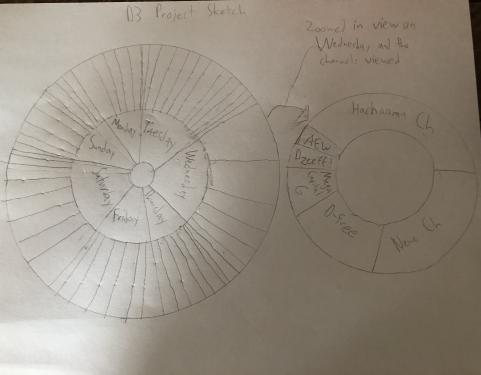 D3 Project Sketch
Zoomed in view on
Wednesday and the
channels viewed
Monday
Tuesday
Wednesday
Friday
Saturday
Sunday
Hachaama Ch
AEW
Nene Ch
D-Free
G